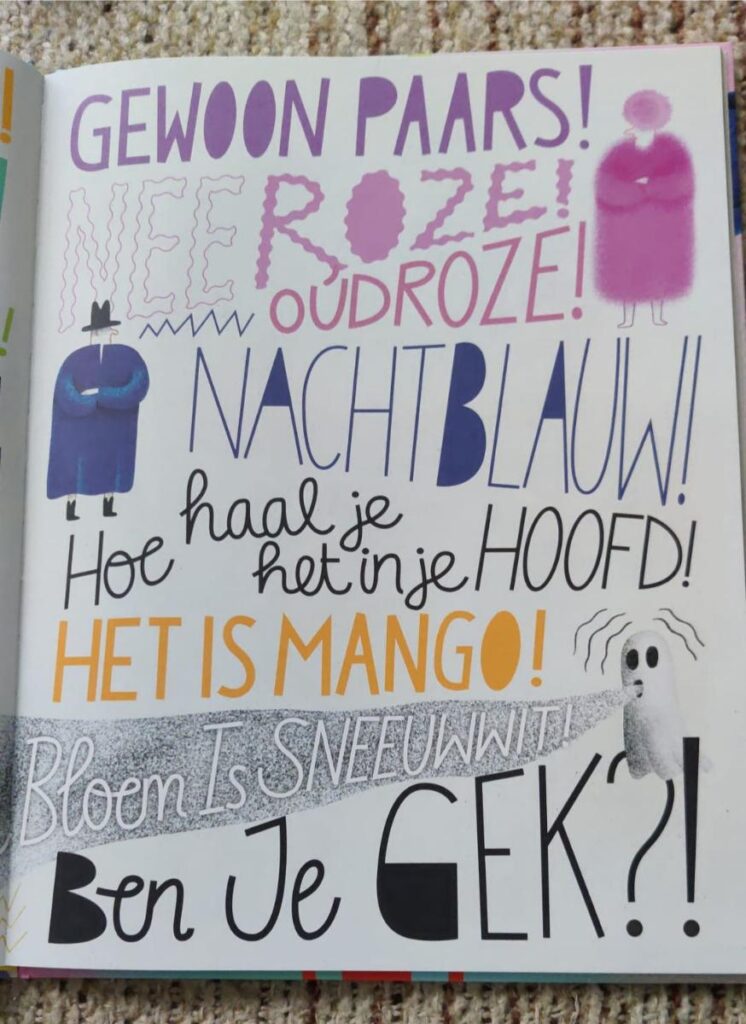 GEWOON PAARS!
NEE ROZE!
OUDROZE!
NACHTBLAUW!
Hoe haal je het in je HOOFD!
HET IS MANGO!
Bloem Is SNEEUWWIT!
Ben Je GEK?!